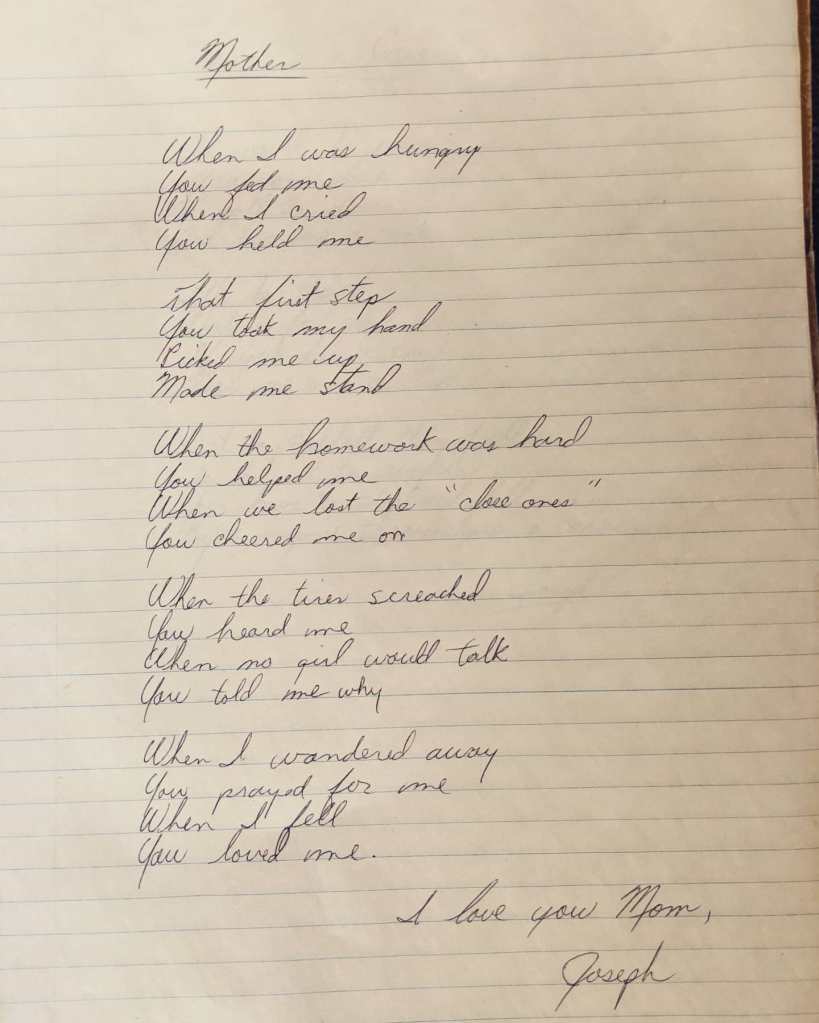 Mother
When I was hungry
You fed me
When I cried
You held me
That first step
You took my hand
Picked me up
Made me stand
When the homework was hard
You helped me
When we lost the "close ones"
You cheered me on
When the tires screached
You heard me
When no girl would talk
You told me why
When I wandered away
You prayed for me
When I fell
You loved me.
I love you Mom,
Joseph